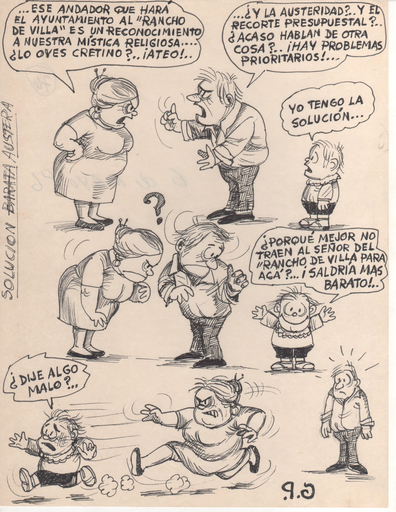 ...ESE ANDADOR QUE HARÁ
EL AYUNTAMIENTO AL "RANCHO
DE VILLA" ES UN RECONOCIMIENTO
A NUESTRA MÍSTICA RELIGIOSA...
¿LO OYES CRETINO?.. ¡ATEO!..
¿Y LA AUSTERIDAD?.. Y EL
RECORTE PRESUPUESTAL?..
¿ACASO HABLAN DE OTRA
COSA?.. ¡HAY PROBLEMAS
PRIORITARIOS!...
YO TENGO LA
SOLUCIÓN...
SOLUCION BARATA AUSTERA
?
¿PORQUE MEJOR NO
TRAEN AL SEÑOR DEL
"RANCHO DE VILLA PARA
ACÁ?... ¡SALDRÍA MAS
BARATO!..
¿DIJE ALGO
MALO?...
G.P.